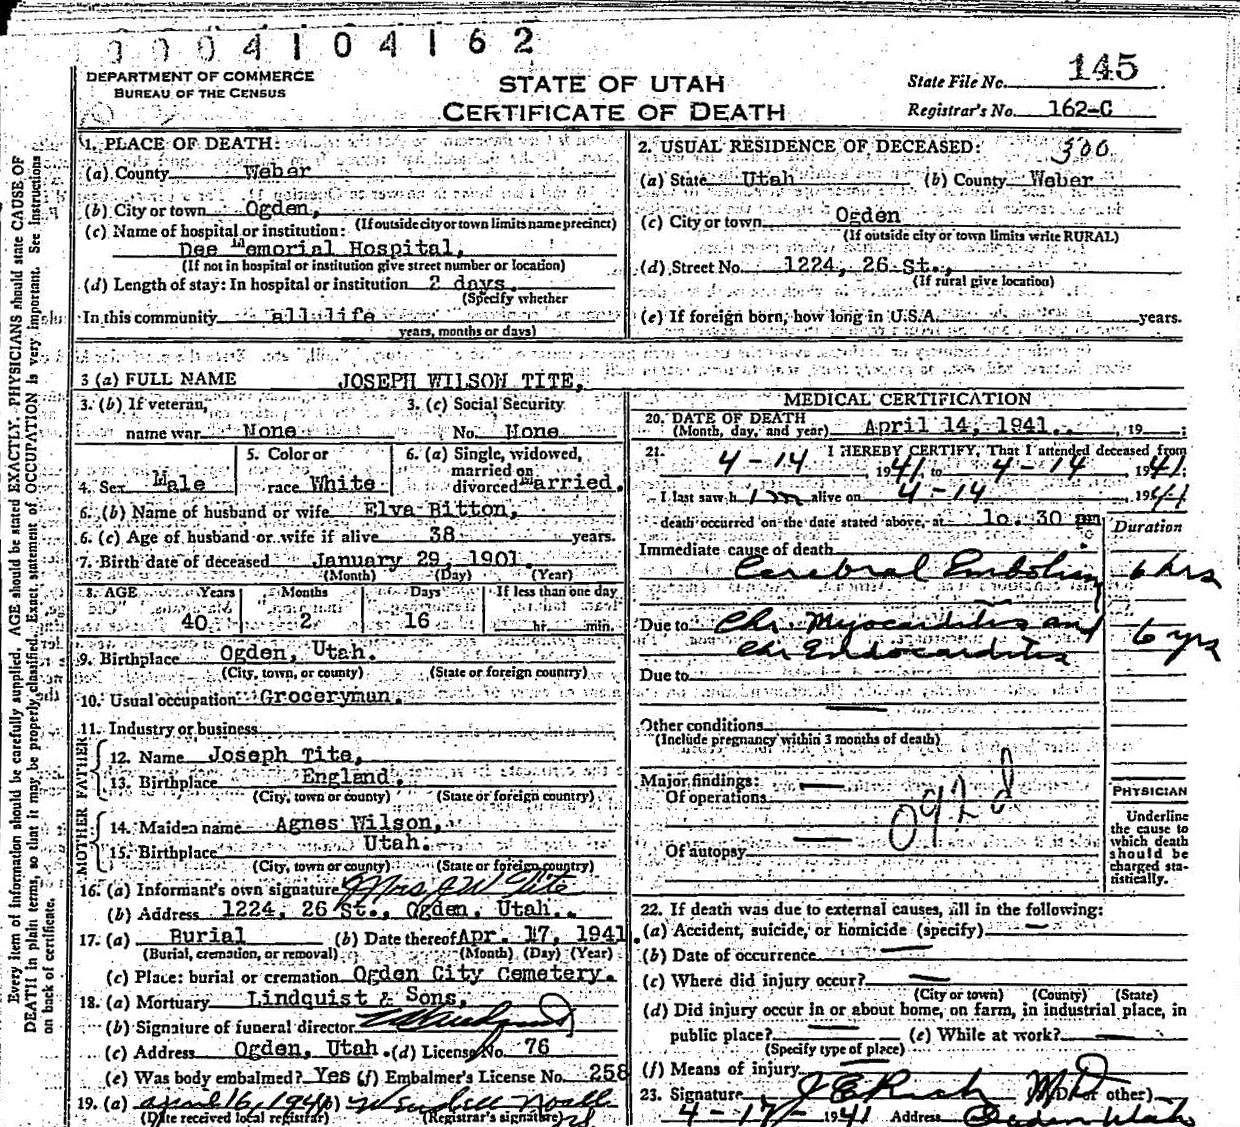 0004104162
DEPARTMENT OF COMMERCE
BUREAU OF THE CENSUS
STATE OF UTAH
CERTIFICATE OF DEATH
State File No. 145
Registrar's No. 162-C
Every item of information should be carefully supplied. AGE should be stated EXACTLY. PHYSICIANS should state CAUSE OF
DEATH in plain terms, so that it may be properly classified. Exact statement of OCCUPATION is very important. See instructions
on back of certificate.
1. PLACE OF DEATH:
(a) County Weber
(b) City or town Ogden,
(If outside city or town limits name precinct)
(c) Name of hospital or institution:
Dee Memorial Hospital,
(If not in hospital or institution give street number or location)
(d) Length of stay: In hospital or institution 2 days.
(Specify whether
In this community all life
years, months or days)
2. USUAL RESIDENCE OF DECEASED: 300
(a) State Utah (b) County Weber
(c) City or town Ogden
(If outside city or town limits write RURAL)
(d) Street No. 1224, 26 St.,
(If rural give location)
(e) If foreign born, how long in U.S.A. years.
3 (a) FULL NAME JOSEPH WILSON TITE,
3. (b) If veteran, 3. (c) Social Security
name war None No. None
4. Sex Male 5. Color or race White 6. (a) Single, widowed, married or divorced Married.
6. (b) Name of husband or wife Elva Bitton,
6. (c) Age of husband or wife if alive 38 years.
7. Birth date of deceased January 29, 1901
(Month) (Day) (Year)
8. AGE Years Months Days If less than one day
40 2 16 hr. min.
9. Birthplace Ogden, Utah.
(City, town, or county) (State or foreign country)
10. Usual occupation Groceryman.
11. Industry or business
FATHER
12. Name Joseph Tite,
13. Birthplace England.
(City, town or county) (State or foreign country)
MOTHER
14. Maiden name Agnes Wilson,
15. Birthplace Utah.
(City, town or county) (State or foreign country)
16. (a) Informant's own signature Mrs J W Tite
(b) Address 1224, 26 St., Ogden, Utah.
17. (a) Burial (b) Date thereof Apr. 17, 1941.
(Burial, cremation, or removal) (Month) (Day) (Year)
(c) Place: burial or cremation Ogden City Cemetery.
18. (a) Mortuary Lindquist & Sons,
(b) Signature of funeral director
(c) Address Ogden, Utah. (d) License No. 76
(e) Was body embalmed? Yes (f) Embalmer's License No. 258
19. (a) April 16, 1941 (b) Wendell Noall
(Date received local registrar) (Registrar's signature)
MEDICAL CERTIFICATION
20. DATE OF DEATH
(Month, day, and year) April 14, 1941. , 19 ;
21. I HEREBY CERTIFY, That I attended deceased from
4-14 1941 to 4-14 1941;
I last saw h im alive on 4-14 , 1941
death occurred on the date stated above, at 10:30 pm
Duration
Immediate cause of death
Cerebral Embolism 6 hrs
Due to Chr. Myocarditis and 6 yrs
Chr Endocarditis
Due to
Other conditions
(Include pregnancy within 3 months of death)
Major findings:
Of operations
092d
Of autopsy
PHYSICIAN
Underline
the cause to
which death
should be
charged sta-
tistically.
22. If death was due to external causes, fill in the following:
(a) Accident, suicide, or homicide (specify)
(b) Date of occurrence
(c) Where did injury occur?
(City or town) (County) (State)
(d) Did injury occur in or about home, on farm, in industrial place, in
public place? (e) While at work?
(Specify type of place)
(f) Means of injury
23. Signature J E Rich M.D. (MD or other)
4-17-1941 Address Ogden Utah